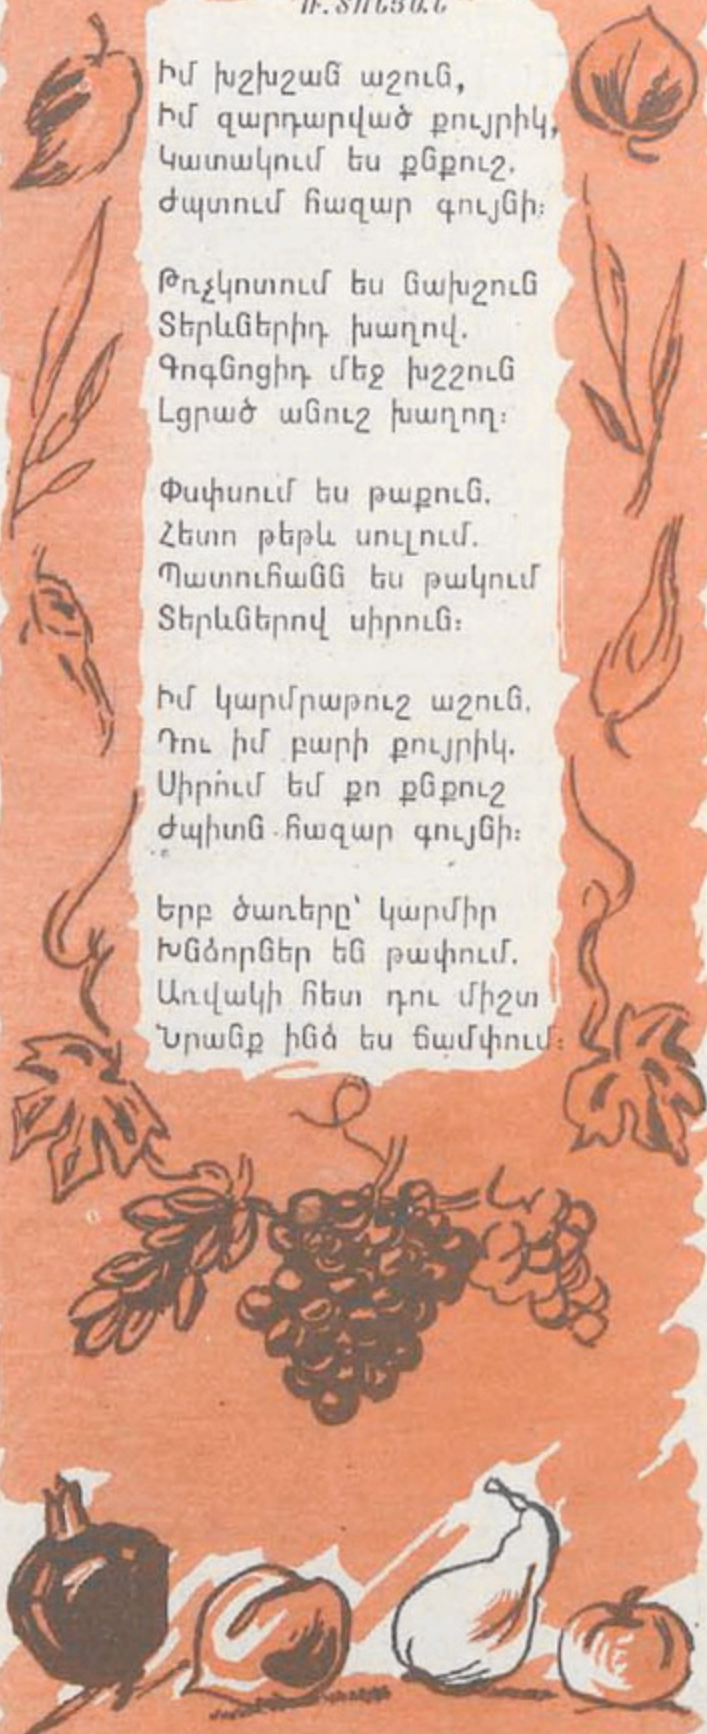 Իմ խշխշան աշուն,
Իմ զարդարված քույրիկ,
Կատակում ես քնքուշ,
Ժպտում հազար գույնի։
Թռչկոտում ես նախշուն
Տերևներիդ խաղով.
Գոգնոցիդ մեջ խշշուն
Լցրած անուշ խաղող։
Փսփսում ես թաքուն,
Հետո թեթև սուլում.
Պատուհանն ես թակում
Տերևներով սիրուն։
Իմ կարմրաթուշ աշուն,
Դու իմ բարի քույրիկ.
Սիրո՛ւմ եմ քո քնքուշ
Ժպիտն հազար գույնի։
Երբ ծառերը՝ կարմիր
Խնձորներ են թափում.
Առվակի հետ դու միշտ
Նրանք ինձ ես ճամփում։